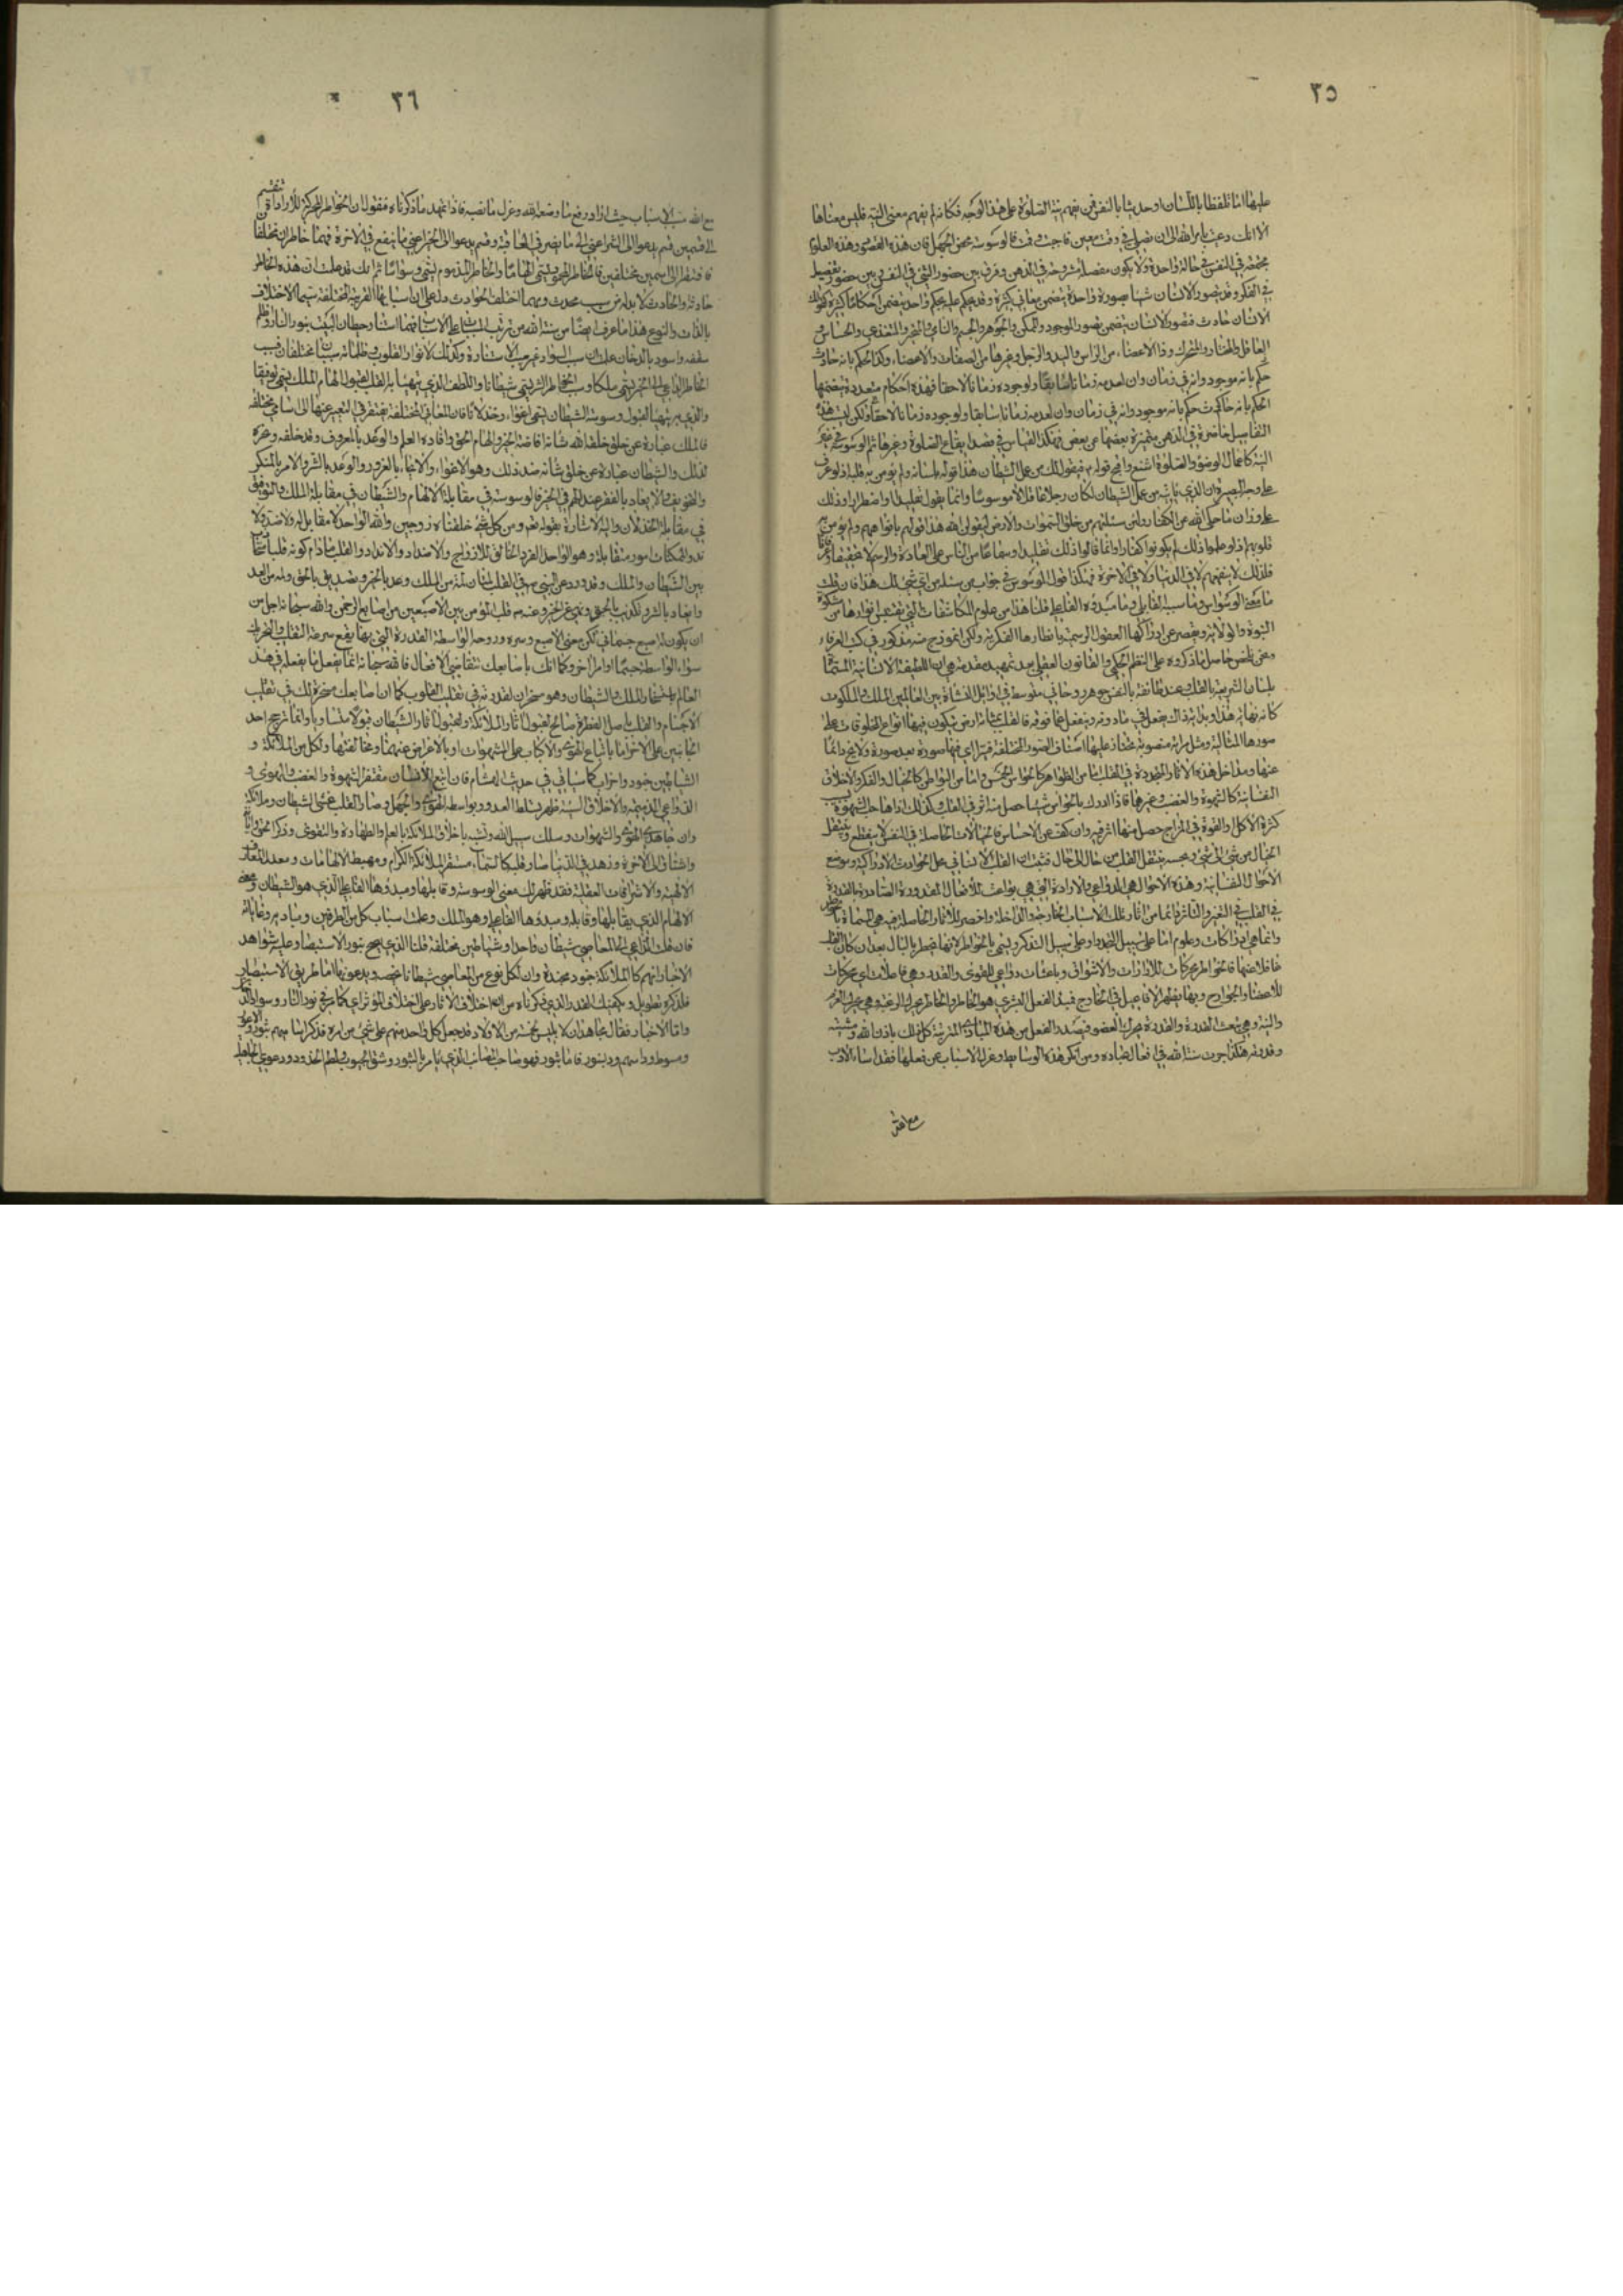 ٣٥
عليها اما تلفظا باللسان او حديثا بالنفس فمن يفهم نية الصلوة على هذا الوجه فكانه لم يفهم معنى النية فليس معناها
الا انك دعيت بامر الله الى ان تصلي في وقت معين فاجبت وقمت فالوسوسة محض الجهل فان هذه القصود وهذه العلوم
مجتمعة في النفس في حالة واحدة ولا يكون مفصلة مشروحة في الذهن وفرق بين حضور الشئ في النفس وبين حضوره بتفصيل
في الفكر وقد يتصور الانسان شيئا بصورة واحدة يتضمن معاني كثيرة وقد يحكم عليه بحكم واحد يتضمن احكاما كثيرة كقولك
الانسان حادث فتصور الانسان يتضمن تصور الموجود والممكن والجوهر والجسم والنامي والمتحيز والمتغذي والحساس و
العاقل والمختار والمتحرك وذا الاعضاء من الراس واليد والرجل وغيرها من الصفات والاعضاء وكذا الحكم بانه حادث
حكم بانه موجود وانه في زمان وان لعدمه زمانا سابقا ولوجوده زمانا لاحقا فهذه احكام متعددة يتضمنها
الحكم بانه حادث حكم بانه موجود وانه في زمان وان لعدمه زمانا سابقا ولوجوده زمانا لاحقا ولكن ليست هذه
التفاصيل حاضرة في الذهن متميزة بعضها عن بعض فهكذا القياس في قصد ايقاع الصلوة وغيرها ثم الوسوسة في غير
النية كافعال الوضوء والصلوة اشنع واقبح
على وجه البصيرة ان الذي يأتيه من عمل الشيطان لكان رجلا عاقلا لا موسوسا وانما يقول تقليدا واضطرارا وذلك
على وزان ما حكى الله عن الكفار ولئن سئلتهم من خلق السموات والارض ليقولن الله هذا قولهم بافواههم ولم يؤمن به
قلوبهم اذ لو علموا ذلك لم يكونوا كفارا وانما قالوا ذلك تقليدا وسماعا من الناس على العادة والرسم لا تحقيقا وعرفانا
فلذلك لا ينفعهم لا في الدنيا ولا في الاخرة فهكذا قول الموسوس في جواب من سئله من اي شئ لك هذا فان قلت
ما معنى الوسواس وما سببه القابلي وما مبدؤه الفاعلي قلنا هذا من علوم المكاشفات التي يقتبس انوارها من مشكوة
النبوة والولاية ويقصر عن ادراكها العقول الرسمية بانظارها الفكرية ولكن انموذج منه مذكور في كتب العرفاء
ونحن نلخص حاصل ما ذكروه على النظم الحكمي والقانون العقلي بعد تمهيد مقدمة هي ان اللطيفة الانسانية المسماة
بلسان الشريعة بالقلب وعند طائفة بالنفس جوهر روحاني متوسط في اوائل النشاة بين العالمين الملك والملكوت
كانه نهاية هذا وبداية ذاك يفعل في ما دونه وينفعل عما فوقه فالقلب بمثابة ارض يتكون فيها انواع المخلوقات على
صورها المثالية ومثل مراة منصوبة تجتاز عليها اصناف الصور المختلفة فيتراى فيها صورة بعد صورة ولا يخ دائما
عنها ومداخل هذه الاثار المتجددة في القلب اما من الظواهر كالحواس الخمس واما من البواطن كالخيال والفكر والاخلاق
النفسانية كالشهوة والغضب وغيرها فاذا ادرك بالحواس شيئا حصل منه اثر في القلب وكذلك اذا هاجت الشهوة بسبب
كثرة الاكل والقوة في المزاج حصل منها اثر فيه وان كف عن الاحساس فالخيالات الحاصلة في النفس لا ينقطع وينتقل
الخيال من شئ الى شئ وبحسبه ينتقل القلب من حال الى حال فثبت ان القلب الانساني محل الحوادث الادراكية وموضع
الاحوال النفسانية وهذه الاحوال هي الدواعي والارادة التي هي بواعث للافعال المقدورة الصادرة بالقدرة
في القلب في التغير والتاثر دائما من اثار تلك الاسباب الخارجة والداخلة واخص الاثار الحاصلة فيه هي المسماة بالخواطر
وانما هي ادراكات وعلوم اما على سبيل التجدد او على سبيل التذكر ويسمى بالخواطر لانها تخطر بالبال بعد ان كان القلب
غافلا عنها فالخواطر محركات للارادات والاشواق وباعثات دواعي للقوى والقدر وهي فاعلات اي محركات
للاعضاء والجوارح وبها يظهر الافاعيل في الخارج فمبدا الفعل البشري هو الخاطر والخاطر يحرك الرغبة وهي يحرك العزم
والنية وهي يبعث القدرة والقدرة يحرك العضو فيصدر الفعل من هذه المبادي المترتبة كل ذلك باذن الله ومشيته
وقدرته هكذا جرت سنة الله في افعال عباده ومن انكر هذه الوسايط وعزل الاسباب عن فعلها فقد اساء الادب
مع الله
٣٦
مع الله مسبب الاسباب حيث اراد رفع ما وضعه الله وعزل ما نصبه فاذا تمهد ما ذكرناه فنقول ان الخواطر المحركة للارادة ينقسم
الى قسمين قسم يدعو الى الشر اعني الى ما يضر في العاقبة وقسم يدعو الى الخير اعني ما ينفع في الاخرة فهما خاطران مختلفان
فافتقرا الى اسمين مختلفين فالخاطر المحمود يسمى الهاما والخاطر المذموم يسمى وسواسا ثم انك قد علمت ان هذه الخاطر
حادثة والحادث لا بد له من سبب محدث ومهما اختلف الحوادث دل على ان اسبابها القريبة مختلفة سيما الاختلاف
بالذات والنوع هذا ما عرف ايضا من سنة الله من ترتيب المسببات على الاسباب فمهما استنار حيطان البيت بنور النار واظلم
سقفه واسود بالدخان علمت ان سبب السواد غير سبب الاستنارة وكذلك لانوار القلوب وظلماته سببان مختلفان فسبب
الخاطر الداعي الى الخير يسمى ملكا وسبب الخاطر الشر يسمى شيطانا واللطف الذي يتهيأ به القلب لقبول الهام الملك يسمى توفيقا
والذي به يتهيأ لقبول وسوسة الشيطان يسمى اغواء وخذلانا فان المعاني المختلفة يفتقر في التعبير عنها الى اسامي مختلفة
فالملك عبارة عن خلق خلقه الله شانه افاضة الخير والهام الحق وافادة العلم والوعد بالمعروف وقد خلقه وسخره
لذلك والشيطان عبارة عن خلق شانه ضد ذلك وهو الاغواء والايحاء بالغرور والوعد بالشر والامر بالمنكر
والتخويف والايعاد بالفقر عند الهم في الخير فالوسوسة في مقابلة الالهام والشيطان في مقابلة الملك والتوفيق
في مقابلة الخذلان واليه الاشارة بقوله تعالى ومن كل شئ خلقنا زوجين والله الواحد لا مقابل له ولا ضد ولا
ند والممكنات امور متقابلة وهو الواحد الفرد الخالق للازواج والاضداد والانداد والقلب ما دام كونه قلبا متجاذب
بين الشيطان والملك وقد ورد عن النبي ص في القلب لمتان لمة من الملك وعد بالخير وتصديق بالحق ولمة من العدو
وايعاد بالشر وتكذيب بالحق ونهي عن الخير وعنه ص قلب المؤمن بين الاصبعين من اصابع الرحمن والله سبحانه اجل من
ان يكون له اصبع جسماني لكن معنى الاصبع وسره وروحه الواسطة القدرة التي بها يقع سرعة التقليب والتحريك
سواء الواسطة جسما او امرا اخر وكما انك باصابعك تتقاضى الافعال فالله سبحانه انما يفعل ما يفعله في هذا
العالم باستسخار الملك والشيطان وهو مسخران لقدرته في تقليب القلوب كما ان اصابعك مسخرة لك في تقليب
الاجسام والقلب باصل الفطرة صالح لقبول اثار الملائكة ولقبول اثار الشيطان قبولا متساويا وانما يترجح احد
الجانبين على الاخر اما باتباع الهوى والاكباب على الشهوات او بالاعراض عنهما ومخالفتها ولكل من الملائكة و
الشياطين جنود واحزاب كما سياتي في حديث الهشام فان اتبع الانسان مقتضى الشهوة والغضب والهوى و
الدواعي الذميمة والاخلاق السيئة ظهر تسلط العدو بواسطة الهوى والجهل وصار القلب عش الشيطان ومملكته
وان جاهد الهوى والشهوات وسلك سبيل الله وتشبه باخلاق الملائكة بالعلم والطهارة والتقوى وذكر الحق وانابه
واشتاق الى الاخرة وزهد في الدنيا صار قلبه كالسماء مستقر الملائكة الكرام ومهبط الالهامات ومعدن المعارف
الالهية والاشراقات العقلية فقد ظهر لك معنى الوسوسة وقابلها ومبدؤها الفاعلي الذي هو الشيطان ومعنى
الالهام الذي يقابلها وقابله ومبدؤها الفاعلي وهو الملك وعلمت اسباب كل من الطرفين ومباديه وغاياته
فان قلت الداعي الى المعاصي شيطان واحد او شياطين مختلفة قلنا الذي يصح بنور الاستبصار وعليه شواهد
الاخبار انهم كالملائكة جنود مجندة وان لكل نوع من المعاصي شيطانا يخصه ويدعو اليها اما طريق الاستبصار
فذكره يطول ويكفيك القدر الذي ذكرناه من ان اختلاف الاثار على اختلاف المؤثر اي كما مر في نور النار وسواد الدخان
واما الاخبار فقال مجاهد ان لابليس خمسة من الاولاد قد جعل كل واحد منهم على شئ من امره فذكر اسماءهم ثبور والاعور
ومسوط وداسم وزلنبور فاما ثبور فهو صاحب المصائب الذي يأمر بالثبور وشق الجيوب ولطم الخدود ودعوى الجاهلية